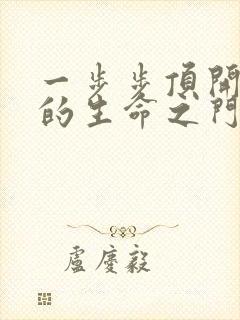 一步步頂開
的生命之門
盧慶毅